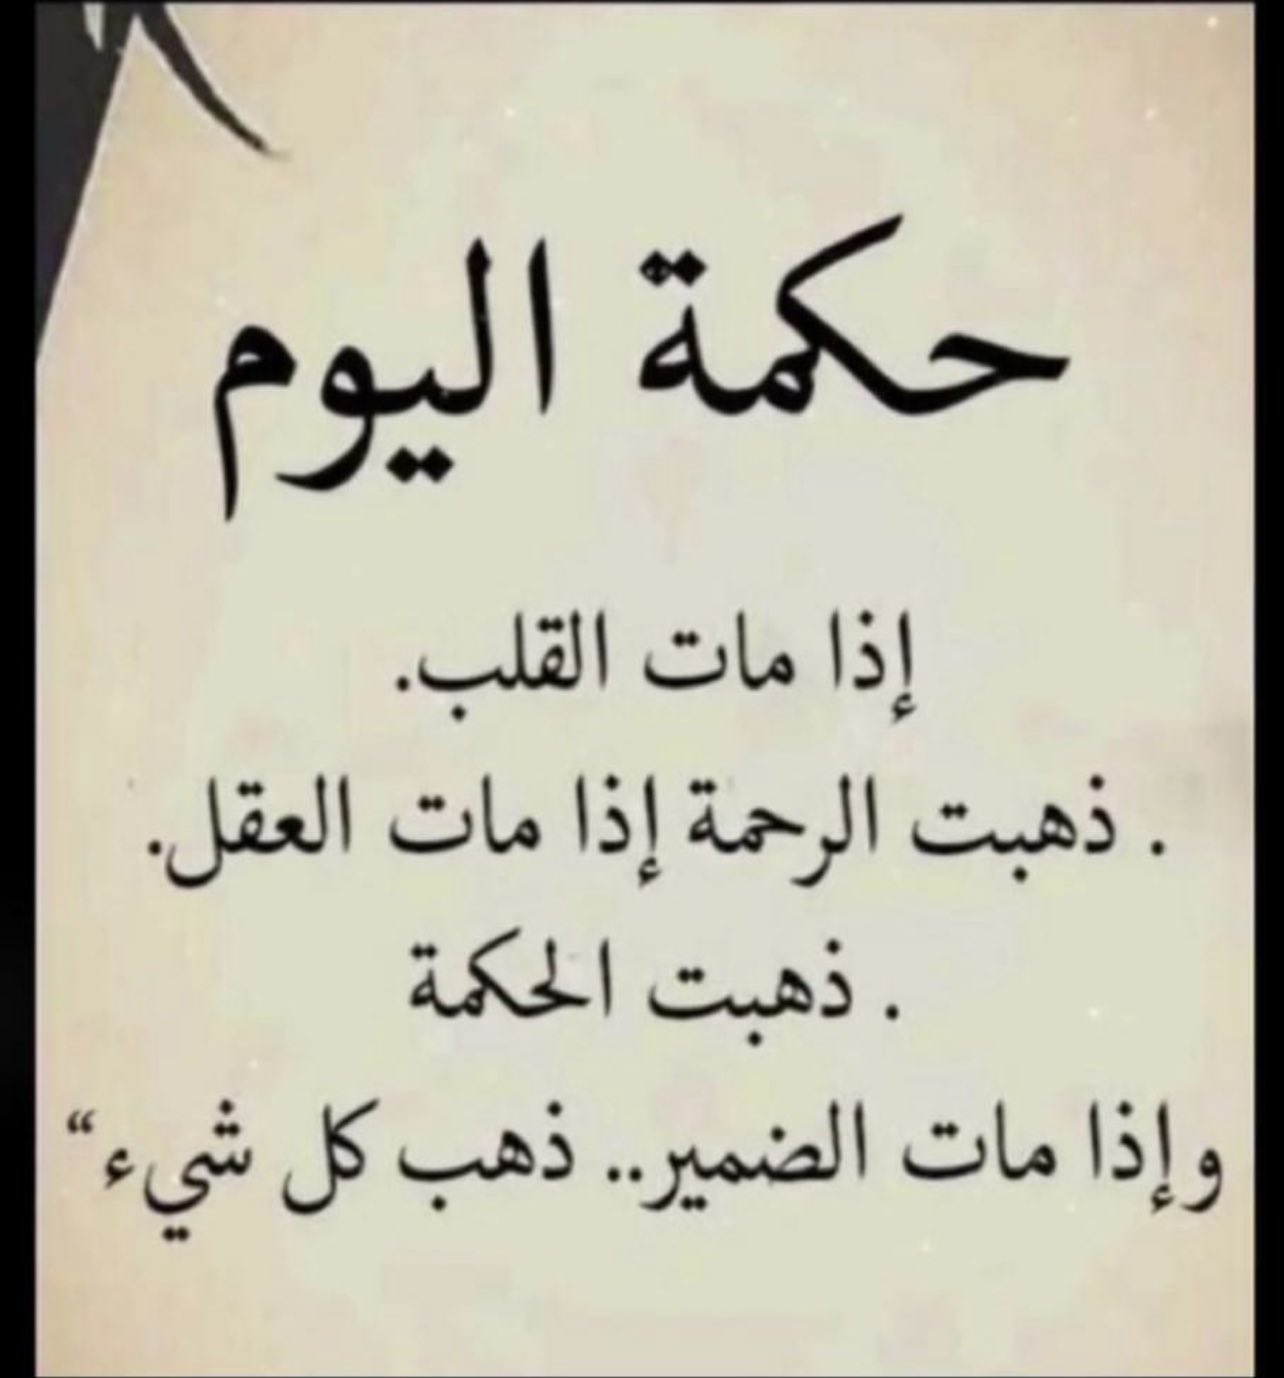 حكمة اليوم
إذا مات القلب.
. ذهبت الرحمة إذا مات العقل.
. ذهبت الحكمة
وإذا مات الضمير.. ذهب كل شيء“